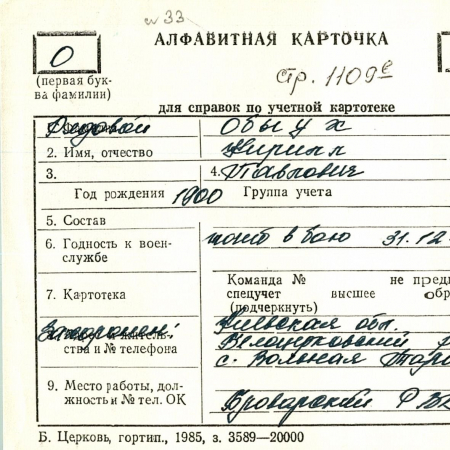 № 33
О
АЛФАВИТНАЯ КАРТОЧКА
(первая бук-
ва фамилии)
стр. 1109
для справок по учетной картотеке
Рядовой Обыух
2. Имя, отчество Кирилл
3. 4. Павлович
Год рождения 1900 Группа учета
5. Состав
6. Годность к воен-
службе
погиб в бою 31.12.
Команда № не пред
спецучет высшее обр
(подчеркнуть)
7. Картотека
Захоронен:
ства и № телефона
Киевская обл.
Белоцерковский р
с. Вольная Тара
9. Место работы, дол-
жность и № тел. ОК
Броварский РВК
Б. Церковь, гортип., 1985, з. 3589—20000